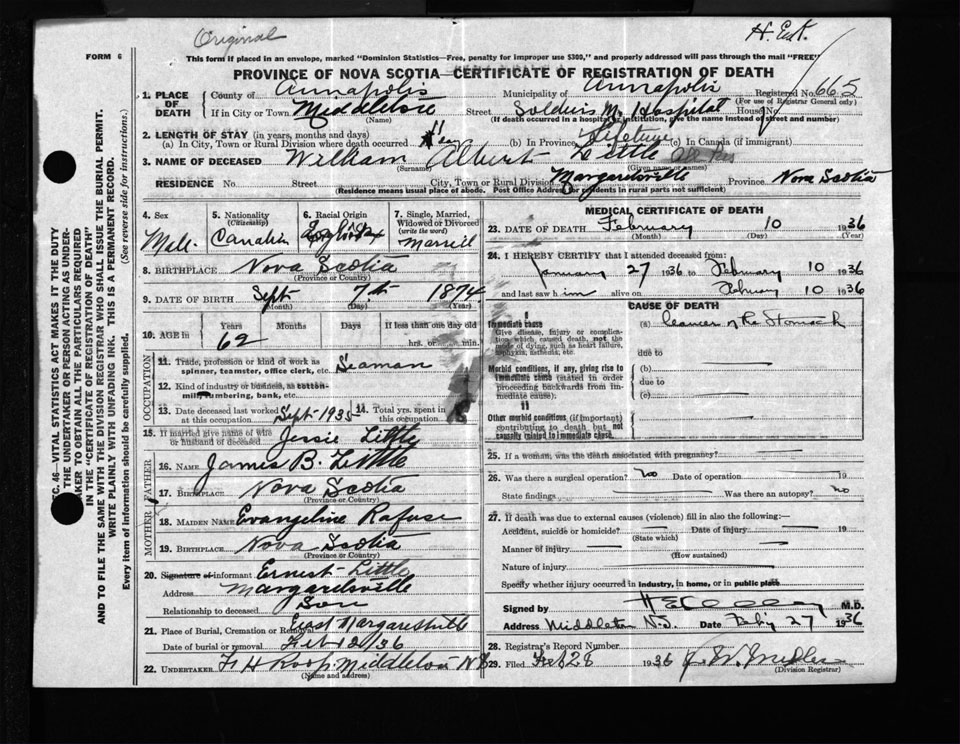 Original
H. E. K.
FORM 6
This form if placed in an envelope, marked "Dominion Statistics—Free, penalty for improper use $300," and properly addressed will pass through the mail "FREE"
PROVINCE OF NOVA SCOTIA—CERTIFICATE OF REGISTRATION OF DEATH
1. PLACE OF DEATH
County of Annapolis Municipality of Annapolis Registered No. 665
(For use of Registrar General only)
If in City or Town Middleton Street Soldiers M. Hospital House No.
(Name) (If death occurred in a hospital or institution, give the name instead of street and number)
2. LENGTH OF STAY (in years, months and days)
(a) In City, Town or Rural Division where death occurred 11 (b) In Province Lifetime (c) In Canada (if immigrant)
3. NAME OF DECEASED William Albert Little
(Surname) (Given name or names)
RESIDENCE No. Street City, Town or Rural Division Margaretsville Province Nova Scotia
(Residence means usual place of abode. Post Office Address for residents in rural parts not sufficient)
4. Sex
Male
5. Nationality
(Citizenship)
Canadian
6. Racial Origin
English
7. Single, Married, Widowed or Divorced
(write the word)
Married
8. BIRTHPLACE Nova Scotia
(Province or Country)
9. DATE OF BIRTH Sept 7th 1874
(Month) (Day) (Year)
10. AGE in Years Months Days If less than one day old
62 hrs. or min.
OCCUPATION
11. Trade, profession or kind of work as spinner, teamster, office clerk, etc. Seaman
12. Kind of industry or business, as cotton-mill, lumbering, bank, etc.
13. Date deceased last worked at this occupation Sept 1935 14. Total yrs. spent in this occupation
15. If married give name of wife or husband of deceased Jessie Little
FATHER
16. NAME James B. Little
17. BIRTHPLACE Nova Scotia
(Province or Country)
MOTHER
18. MAIDEN NAME Evangeline Rafuse
19. BIRTHPLACE Nova Scotia
(Province or Country)
20. Signature of informant Ernest Little
Address Margaretsville
Relationship to deceased Son
21. Place of Burial, Cremation or Removal East Margaretsville
Date of burial or removal Feb 12/36
22. UNDERTAKER F H Roop. Middleton N.S.
(Name and address)
MEDICAL CERTIFICATE OF DEATH
23. DATE OF DEATH February 10 1936
(Month) (Day) (Year)
24. I HEREBY CERTIFY that I attended deceased from:
January 27 1936 to February 10 1936
and last saw him alive on February 10 1936
CAUSE OF DEATH
I
Immediate cause
Give disease, injury or complication which caused death, not the mode of dying, such as heart failure, asphyxia, asthenia, etc.
(a) Cancer of the Stomach
due to
Morbid conditions, if any, giving rise to immediate cause (stated in order proceeding backwards from immediate cause).
(b)
due to
(c)
II
Other morbid conditions (if important) contributing to death but not causally related to immediate cause.
25. If a woman, was the death associated with pregnancy?
26. Was there a surgical operation? No Date of operation 19
State findings Was there an autopsy? No
27. If death was due to external causes (violence) fill in also the following:—
Accident, suicide or homicide? Date of injury 19
(State which)
Manner of injury
(How sustained)
Nature of injury
Specify whether injury occurred in industry, in home, or in public place
Signed by M.D.
Address Middleton N.S. Date Feby 27 1936
28. Registrar's Record Number
29. Filed Feb 28 1936
(Division Registrar)
SEC. 46—VITAL STATISTICS ACT MAKES IT THE DUTY OF THE UNDERTAKER OR PERSON ACTING AS UNDERTAKER TO OBTAIN ALL THE PARTICULARS REQUIRED IN THE "CERTIFICATE OF REGISTRATION OF DEATH" AND TO FILE THE SAME WITH THE DIVISION REGISTRAR WHO SHALL ISSUE THE BURIAL PERMIT.
WRITE PLAINLY WITH UNFADING INK. THIS IS A PERMANENT RECORD.
Every item of information should be carefully supplied. (See reverse side for instructions.)